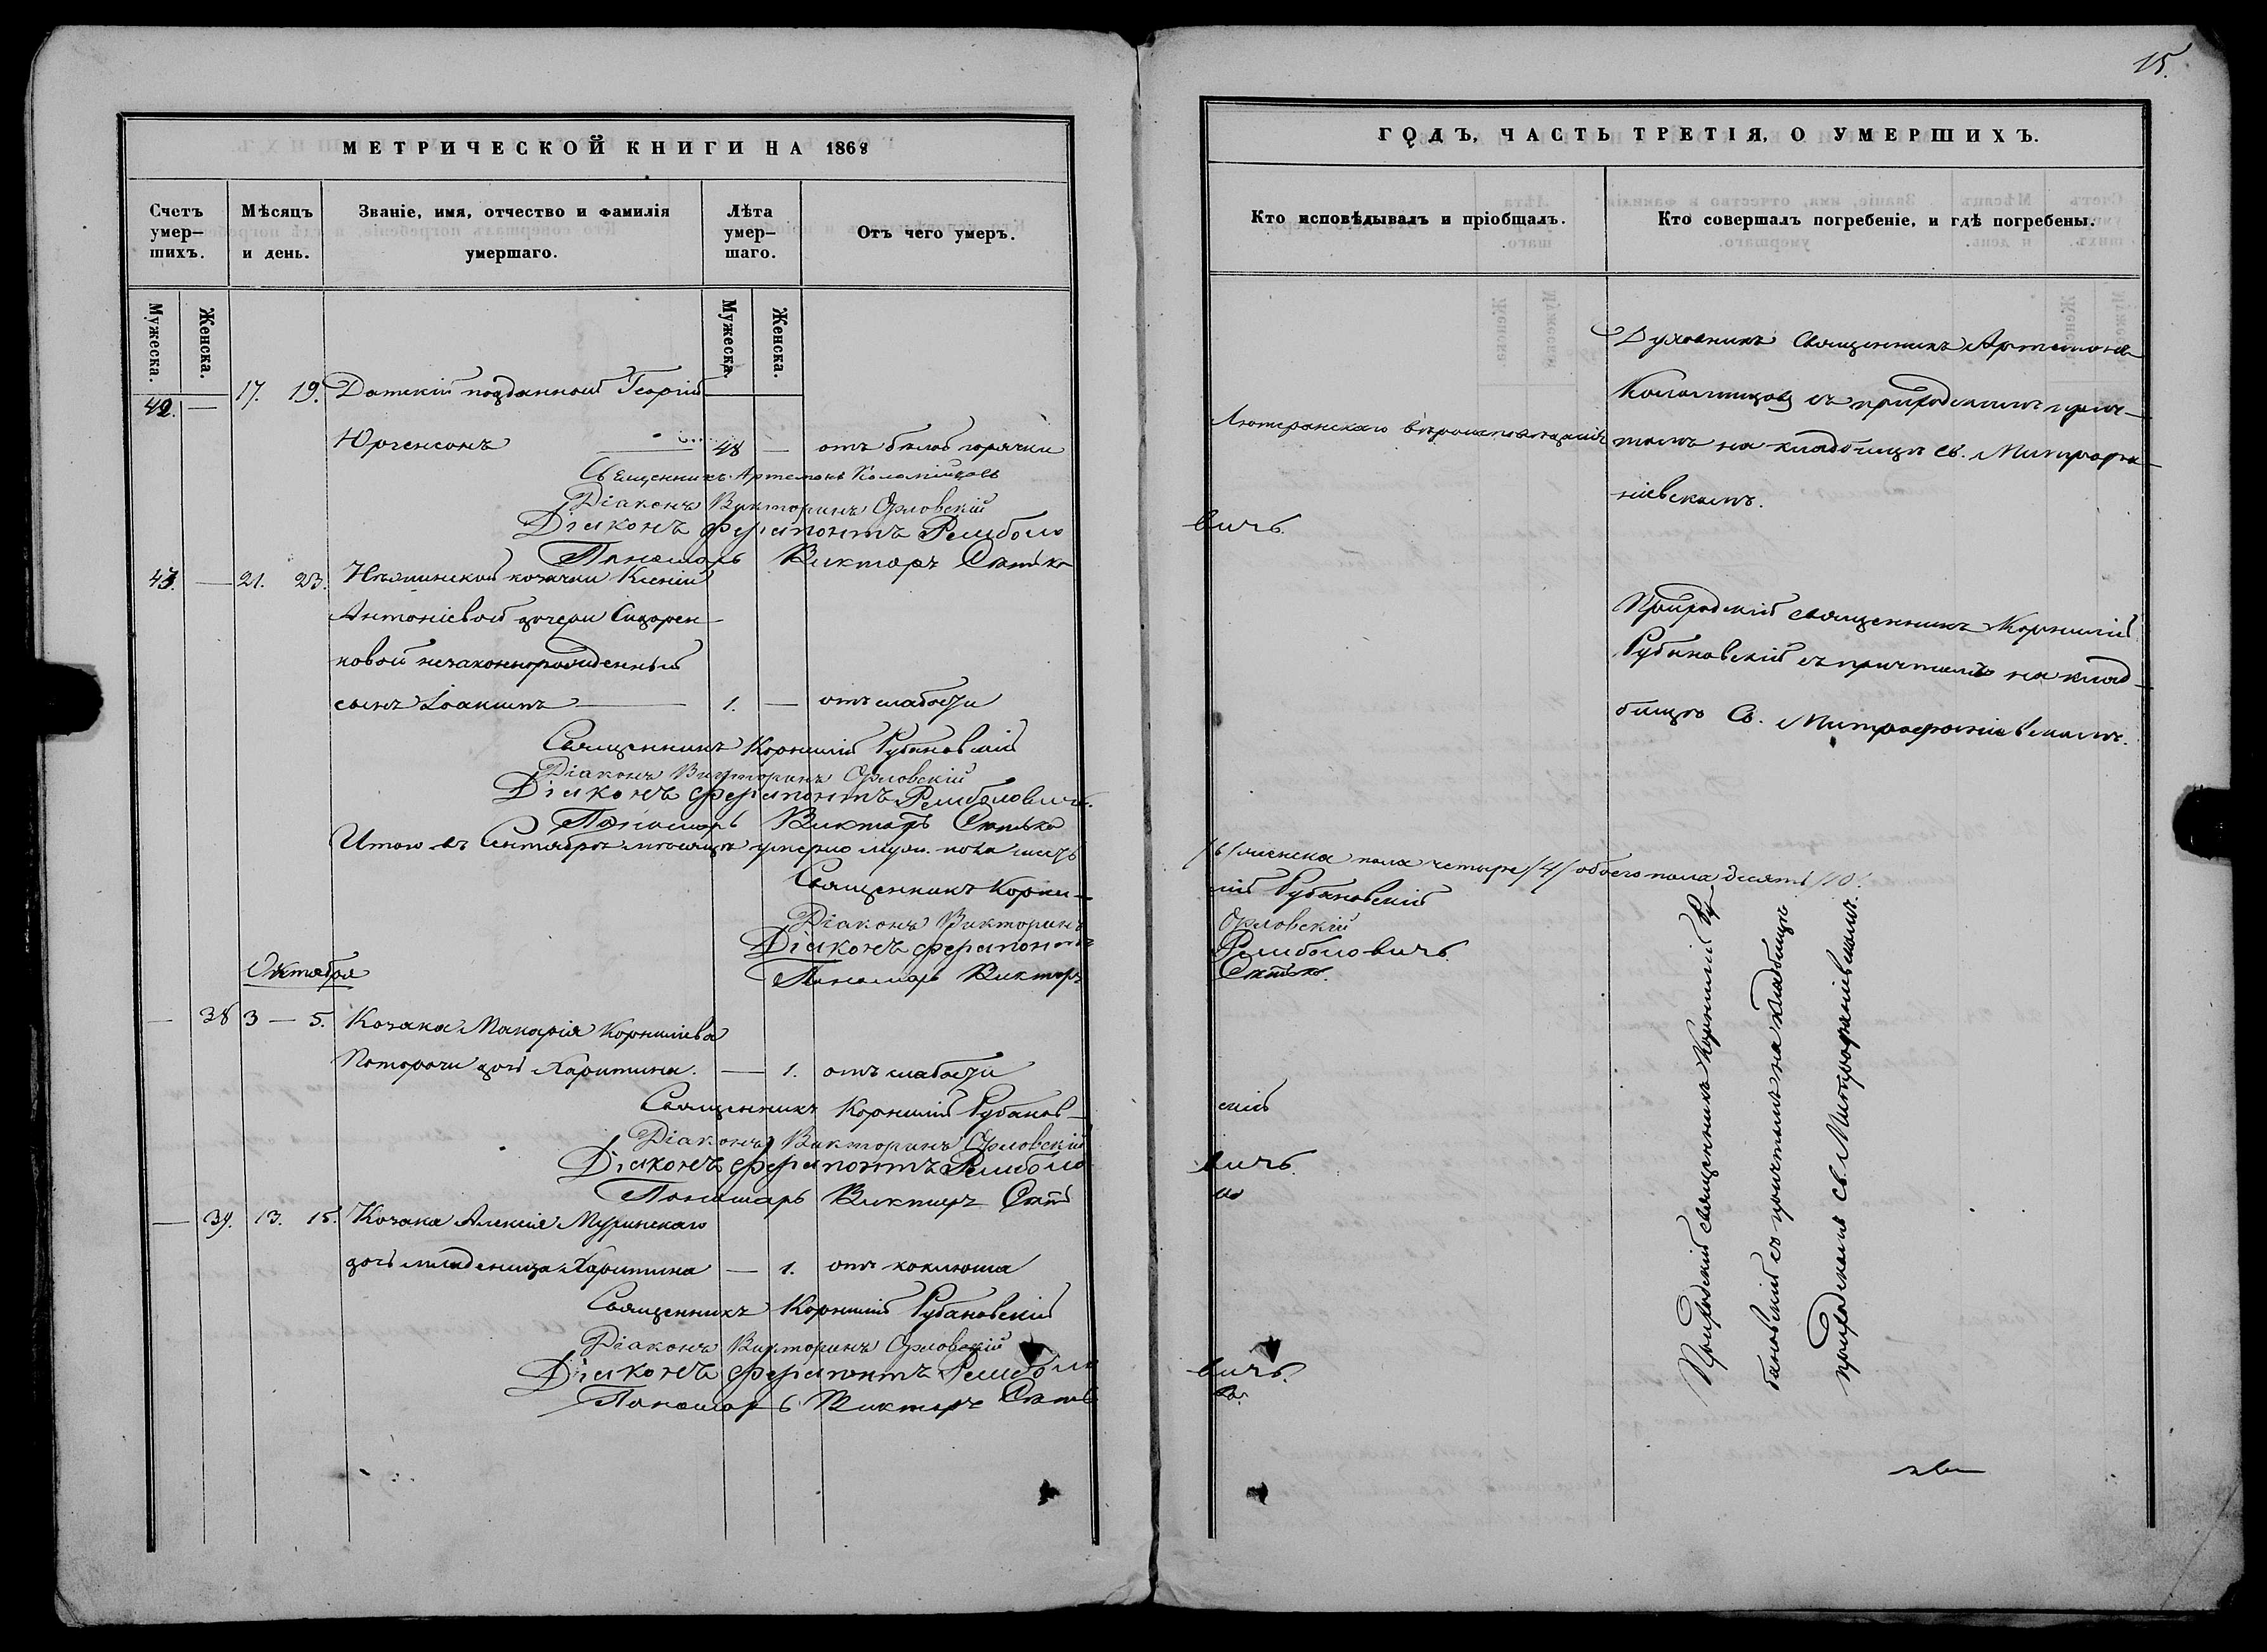 15.
МЕТРИЧЕСКОЙ КНИГИ НА 1868
Счетъ умер-шихъ.
Мѣсяцъ и день.
Званіе, имя, отчество и фамилія умершаго.
Лѣта умер-шаго.
Отъ чего умеръ.
Мужеска.
Женска.
Мужеска.
Женска.
42. — 17. 19. Датскій подданной Георгій
Юргенсонъ 48 — отъ белой горячки
Священникъ Артемонъ Коломійцовъ
Діаконъ Викторинъ Орловскій
Діаконъ Ферапонтъ Ремболо
Пономарь Виктор
43. — 21. 23. козачки Ксеніи
Антоніевой дочери Сидорен-
ковой незаконнорожденный
сынъ Іоакимъ 1. — отъ слабости
Священникъ Корнилій Рубановскій
Діаконъ Викторинъ Орловскій
Діаконъ Ферапонтъ Ремболовичъ.
Пономарь Викторъ
Итого въ Сентябрѣ мѣсяцѣ умерло муж. пола шесть
Священникъ Корни-
Діаконъ Викторинъ
Діаконъ Ферапонтъ
Пономарь Викторъ
Октября
— 38 3 — 5. Козака Макарія Корнилiева
Поторочи дочь Харитина. — 1. отъ слабости
Священникъ Корнилій Рубанов-
Діаконъ Викторинъ Орловскій
Діаконъ Ферапонтъ Ремболо
Пономарь Викторъ
— 39. 13. 15. Козака Алексія Муринскаго
дочь младенца Харитина — 1. отъ коклюша
Священникъ Корнилій Рубановскій
Діаконъ Викторинъ Орловскій
Діаконъ Ферапонтъ Ремболо
Пономарь Викторъ
ГОДЪ, ЧАСТЬ ТРЕТІЯ, О УМЕРШИХЪ.
Кто исповѣдывалъ и пріобщалъ.
Кто совершалъ погребеніе, и гдѣ погребены.
Лютеранскаго вѣроисповѣданія
вичъ.
Духовникъ Священникъ Артемонъ
Коломійцовъ съ приходскимъ прич-
томъ на кладбищѣ Св. Митрофа-
ніевскомъ.
Приходскій священникъ Корнилій
Рубановскій съ причтомъ на клад-
бищѣ Св. Митрофаніевскомъ.
/6/ женска пола четыре /4/ обоего пола десять /10/.
лій Рубановскій
Орловскій
Ремболовичъ.
скій
вичъ.
ко
вичъ.
ко.
Приходскій священникъ Корнилій Ру-
бановскій съ причтомъ на кладбищѣ
приходскомъ Св. Митрофаніевскомъ.